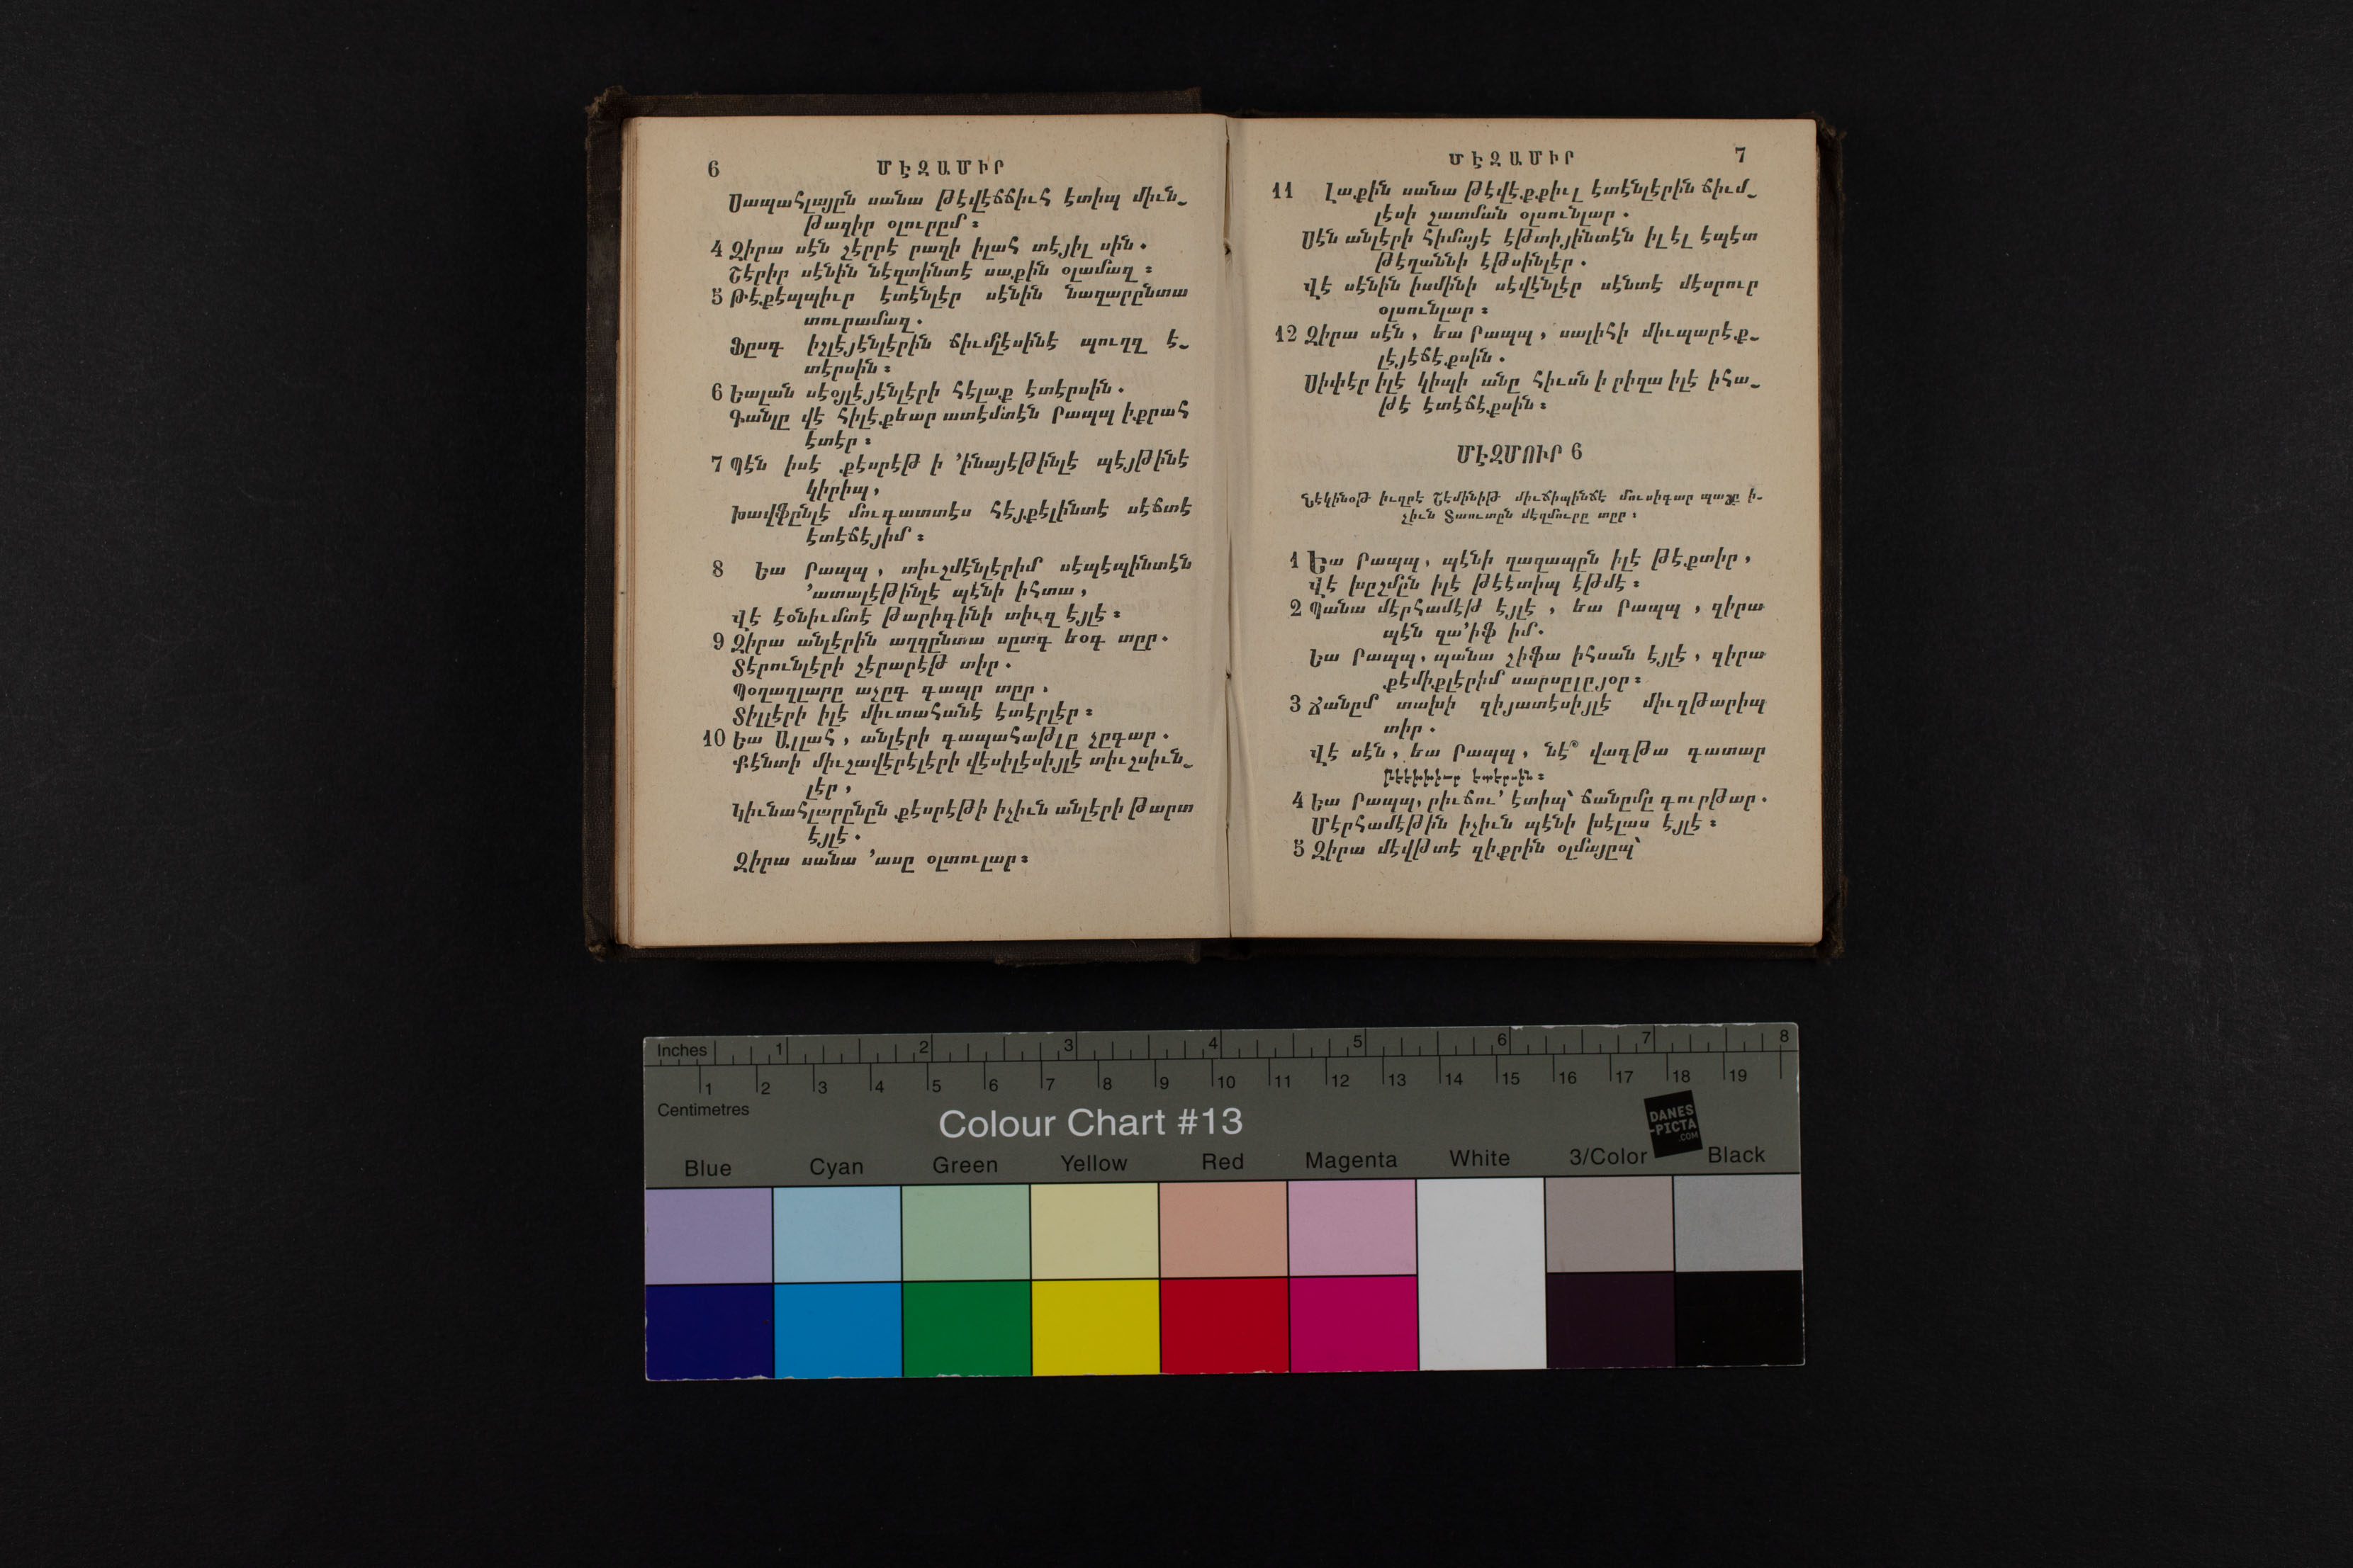 6 ՄԷԶԱՄԻՐ
Սապահլայըն սանա թէվէճճիւհ էտիպ միւն֊
թազիր օլուրըմ ։
4 Զիրա սէն չէրրէ րազի իլահ տէյիլ սին ․
Շէրիր սէնին նէզտինտէ սաքին օլամազ ։
5 Թէքէպպիւր էտէնլէր սէնին նազարընտա
տուրամազ ․
Ֆըսգ իշլէյէնլէրին ճիւմլէսինէ պուղզ է֊
տէրսին ։
6 Եալան սէօյլէյէնլէրի հէլաք էտէրսին ․
Գանլը վէ հիլէքեար ատէմտէն Րապպ իքրահ
էտէր ։
7 Պէն իսէ քէսրէթ ի ՚ինայէթինլէ պէյթինէ
կիրիպ ,
Խավֆընլէ մուգատտէս հէյքէլինտէ սէճտէ
էտէճէյիմ ։
8 Եա Րապպ , տիւշմէնլէրիմ սէպէպինտէն
՚ատալէթինլէ պէնի իհտա ,
Վէ էօնիւմտէ թարիգինի տիւզ էյլէ ։
9 Զիրա անլէրին աղզընտա սըտգ եօգ տըր ․
Տէրունլէրի շէրարէթ տիր ․
Պօղազլարը աչըգ գապր տըր ․
Տիլլէրի իլէ միւտահանէ էտէրլէր ։
10 Եա Ալլահ , անլէրի գապահաթլը չըգար ․
Քէնտի միւշավէրէլէրի վէսիլէսիյլէ տիւշսիւն֊
լէր ,
Կիւնահլարընըն քէսրէթի իչիւն անլէրի թարտ
էյլէ ․
Զիրա սանա ՚ասը օլտուլար ։
ՄԷԶԱՄԻՐ 7
11 Լաքին սանա թէվէքքիւլ էտէնլէրին ճիւմ֊
լէսի շատման օլսունլար ․
Սէն անլէրի հիմայէ էթտիյինտէն իլէլ էպէտ
թէղաննի էթսինլէր ․
Վէ սէնին իսմինի սէվէնլէր սէնտէ մէսրուր
օլսունլար ։
12 Զիրա սէն , եա Րապպ , սալիհի միւպարէք֊
լէյէճէքսին ․
Սիփէր իլէ կիպի անը հիւսն ի րիզա իլէ իհա֊
թէ էտէճէքսին ։
ՄԷԶՄՈՒՐ 6
Նէկինօթ իւզրէ Շէմինիթ միւճիպինճէ մուսիգար պաշը ի֊
չիւն Տաուտըն մէզմուրը տըր ։
1 Եա Րապպ , պէնի ղազապըն իլէ թէքտիր ,
Վէ խըշմըն իլէ թէէտիպ էթմէ ։
2 Պանա մէրհամէթ էյլէ , եա Րապպ , զիրա
պէն զա՚իֆ իմ ․
Եա Րապպ , պանա շիֆա իհսան էյլէ , զիրա
քէմիքլէրիմ սարսըլըյօր ։
3 Ճանըմ տախի զիյատէսիյլէ միւզթարիպ
տիր ․
Վէ սէն , եա Րապպ , նէ՞ վագթա գատար
4 Եա Րապպ , րիւճու՚ էտիպ՝ ճանըմը գուրթար ․
Մէրհամէթին իչիւն պէնի խէլաս էյլէ ։
5 Զիրա մէվթտէ զիքրին օլմայըպ՝
Inches 1 2 3 4 5 6 7 8
1 2 3 4 5 6 7 8 9 10 11 12 13 14 15 16 17 18 19
Centimetres
Colour Chart #13
DANES
-PICTA
.COM
Blue Cyan Green Yellow Red Magenta White 3/Color Black